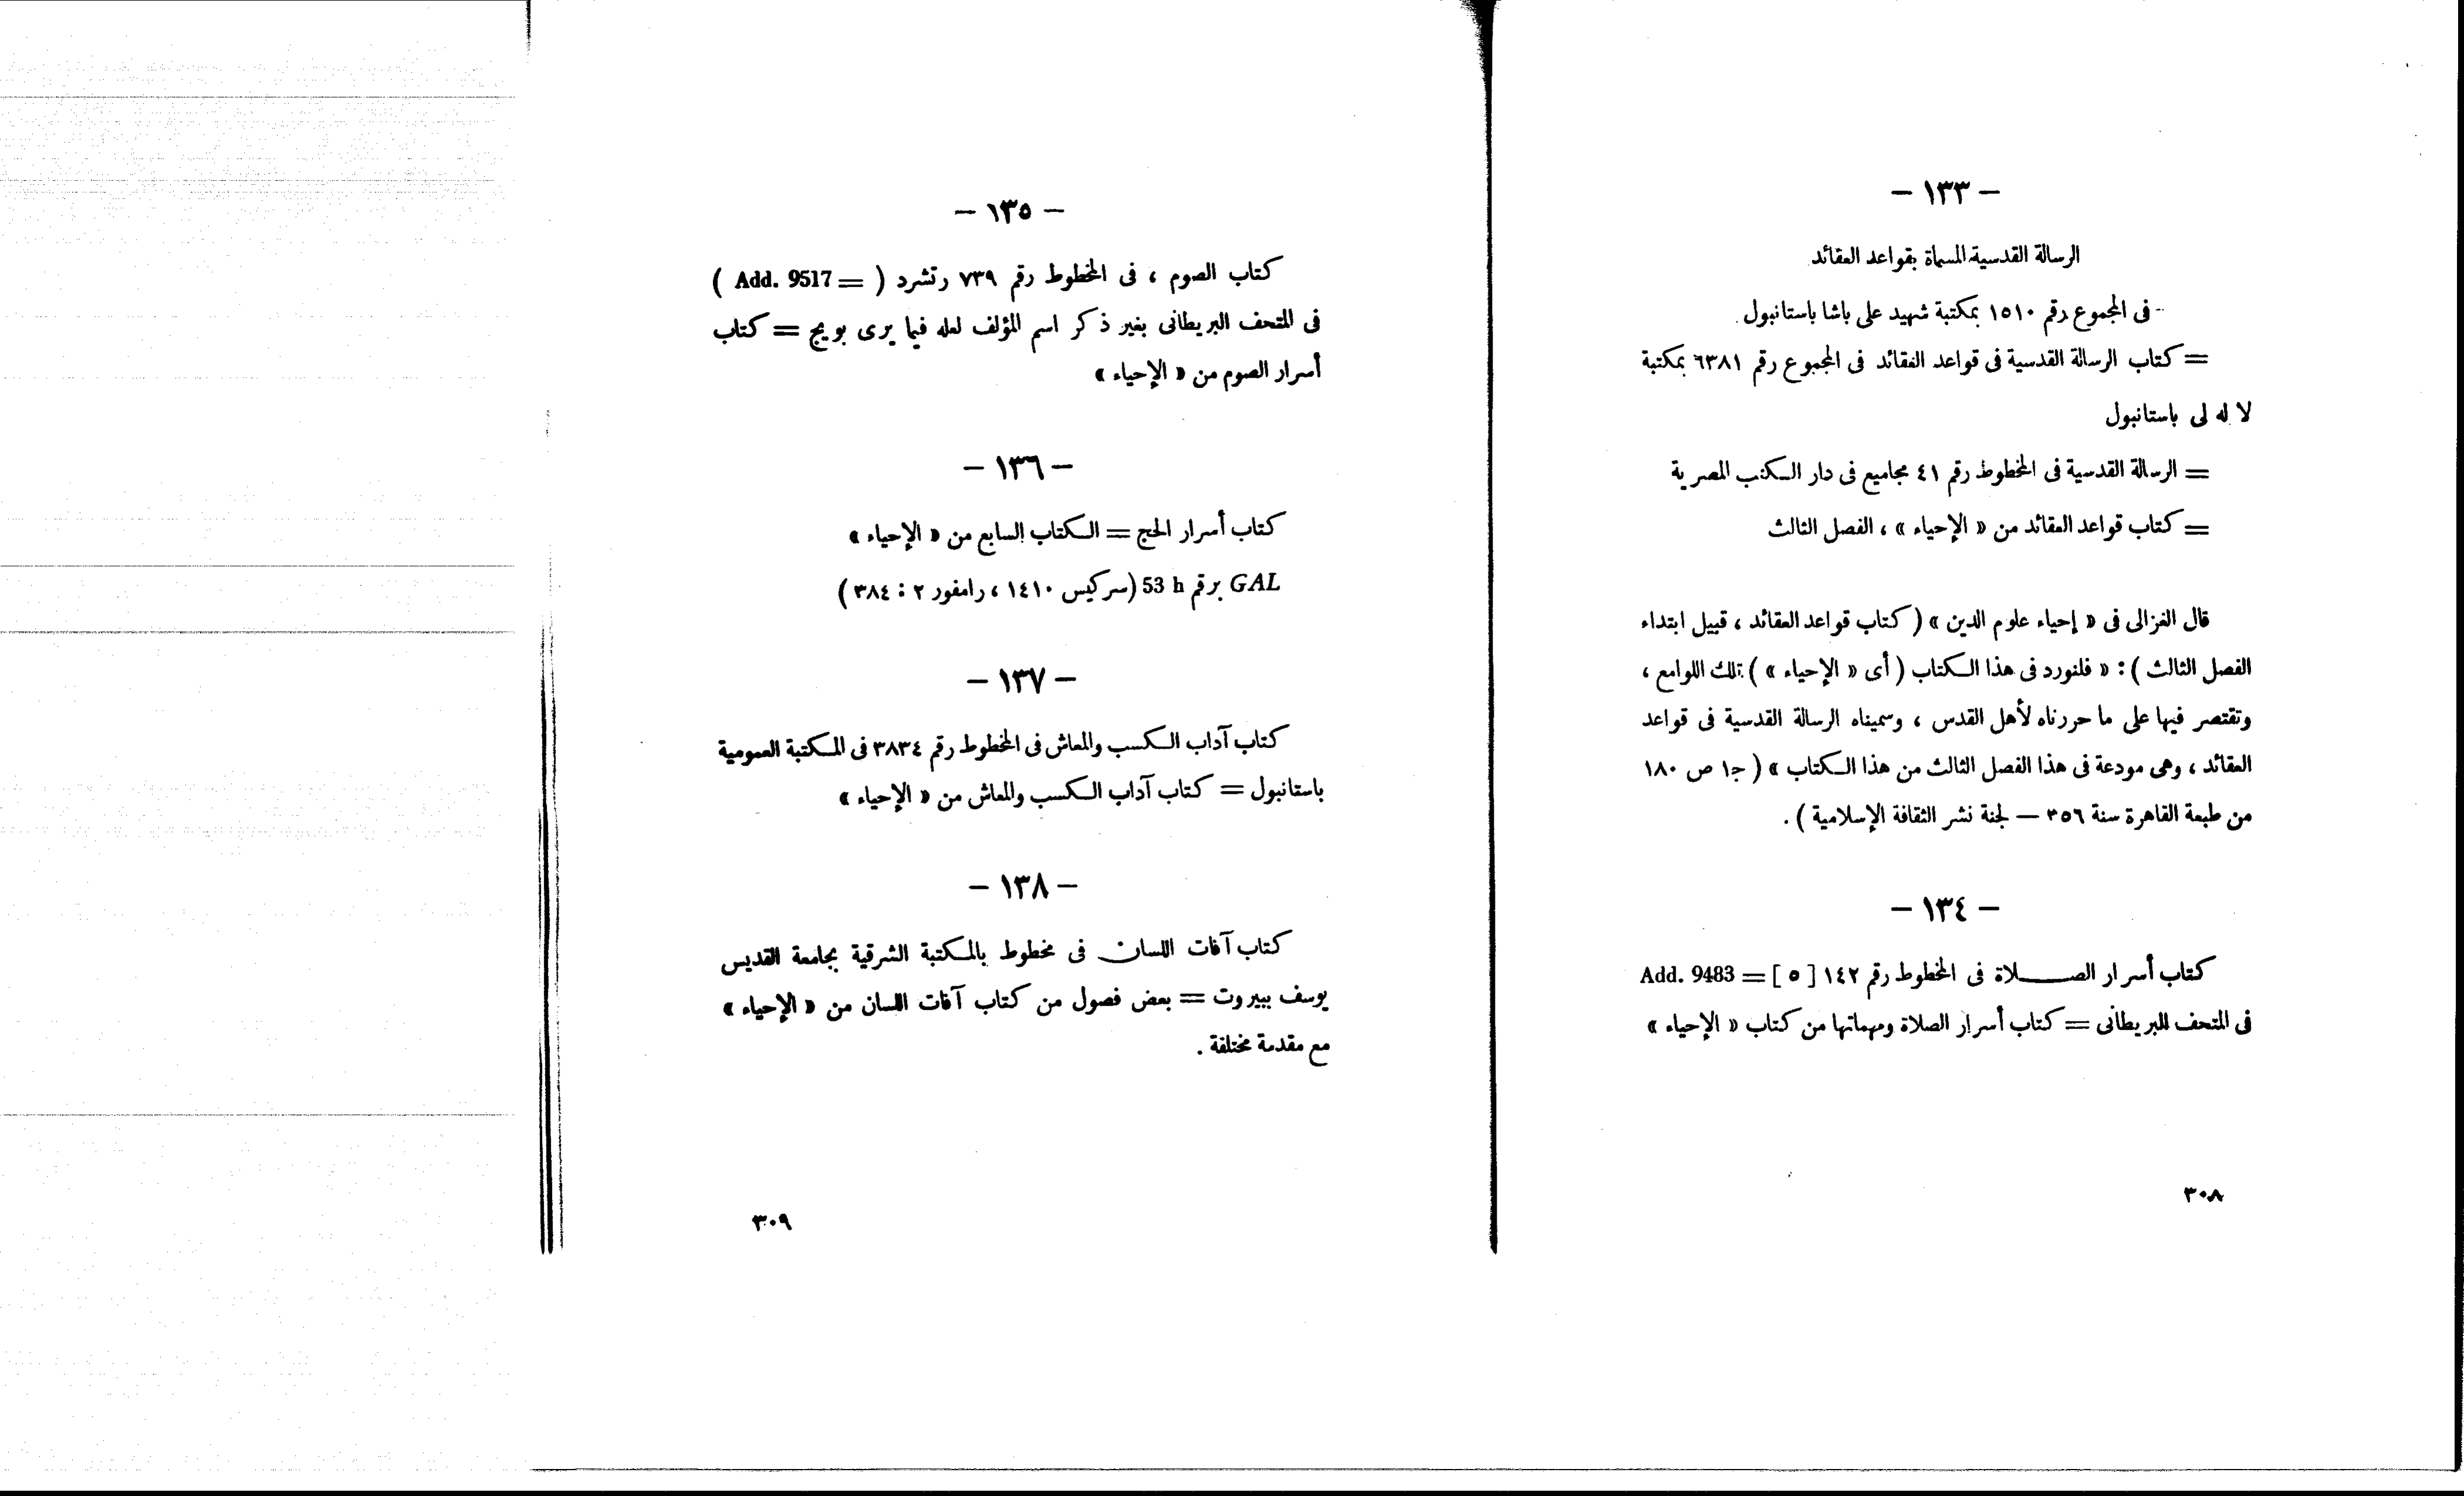 — ١٣٣ —
الرسالة القدسية المسماة بقواعد العقائد
فى المجموع رقم ١٥١٠ بمكتبة شهيد على باشا باستانبول
= كتاب الرسالة القدسية فى قواعد العقائد فى المجموع رقم ٦٣٨١ بمكتبة
لا له لى باستانبول
= الرسالة القدسية فى المخطوط رقم ٤١ مجاميع فى دار الكتب المصرية
= كتاب قواعد العقائد من « الإحياء » ، الفصل الثالث
قال الغزالى فى « إحياء علوم الدين » ( كتاب قواعد العقائد ، قبيل ابتداء
الفصل الثالث ) : « فلنورد فى هذا الكتاب ( أى « الإحياء » ) تلك اللوامع ،
وتقتصر فيها على ما حررناه لأهل القدس ، وسميناه الرسالة القدسية فى قواعد
العقائد ، وهى مودعة فى هذا الفصل الثالث من هذا الكتاب » ( ج١ ص ١٨٠
من طبعة القاهرة سنة ٣٥٦ — لجنة نشر الثقافة الإسلامية ) .
— ١٣٤ —
كتاب أسرار الصلاة فى المخطوط رقم ١٤٢ [ ٥ ] = Add. 9483
فى المتحف البريطانى = كتاب أسرار الصلاة ومهماتها من كتاب « الإحياء »
٣٠٨
— ١٣٥ —
كتاب الصوم ، فى المخطوط رقم ٧٣٩ رتشرد ( = Add. 9517 )
فى المتحف البريطانى بغير ذكر اسم المؤلف لعله فيما يرى بويج = كتاب
أسرار الصوم من « الإحياء »
— ١٣٦ —
كتاب أسرار الحج = الكتاب السابع من « الإحياء »
GAL برقم 53 h (سركيس ١٤١٠ ، رامفور ٢ : ٣٨٤ )
— ١٣٧ —
كتاب آداب الكسب والمعاش فى المخطوط رقم ٣٨٣٤ فى المكتبة العمومية
باستانبول = كتاب آداب الكسب والمعاش من « الإحياء »
— ١٣٨ —
كتاب آفات اللسان فى مخطوط بالمكتبة الشرقية بجامعة القديس
يوسف ببيروت = بعض فصول من كتاب آفات اللسان من « الإحياء »
مع مقدمة مختلفة .
٣٠٩